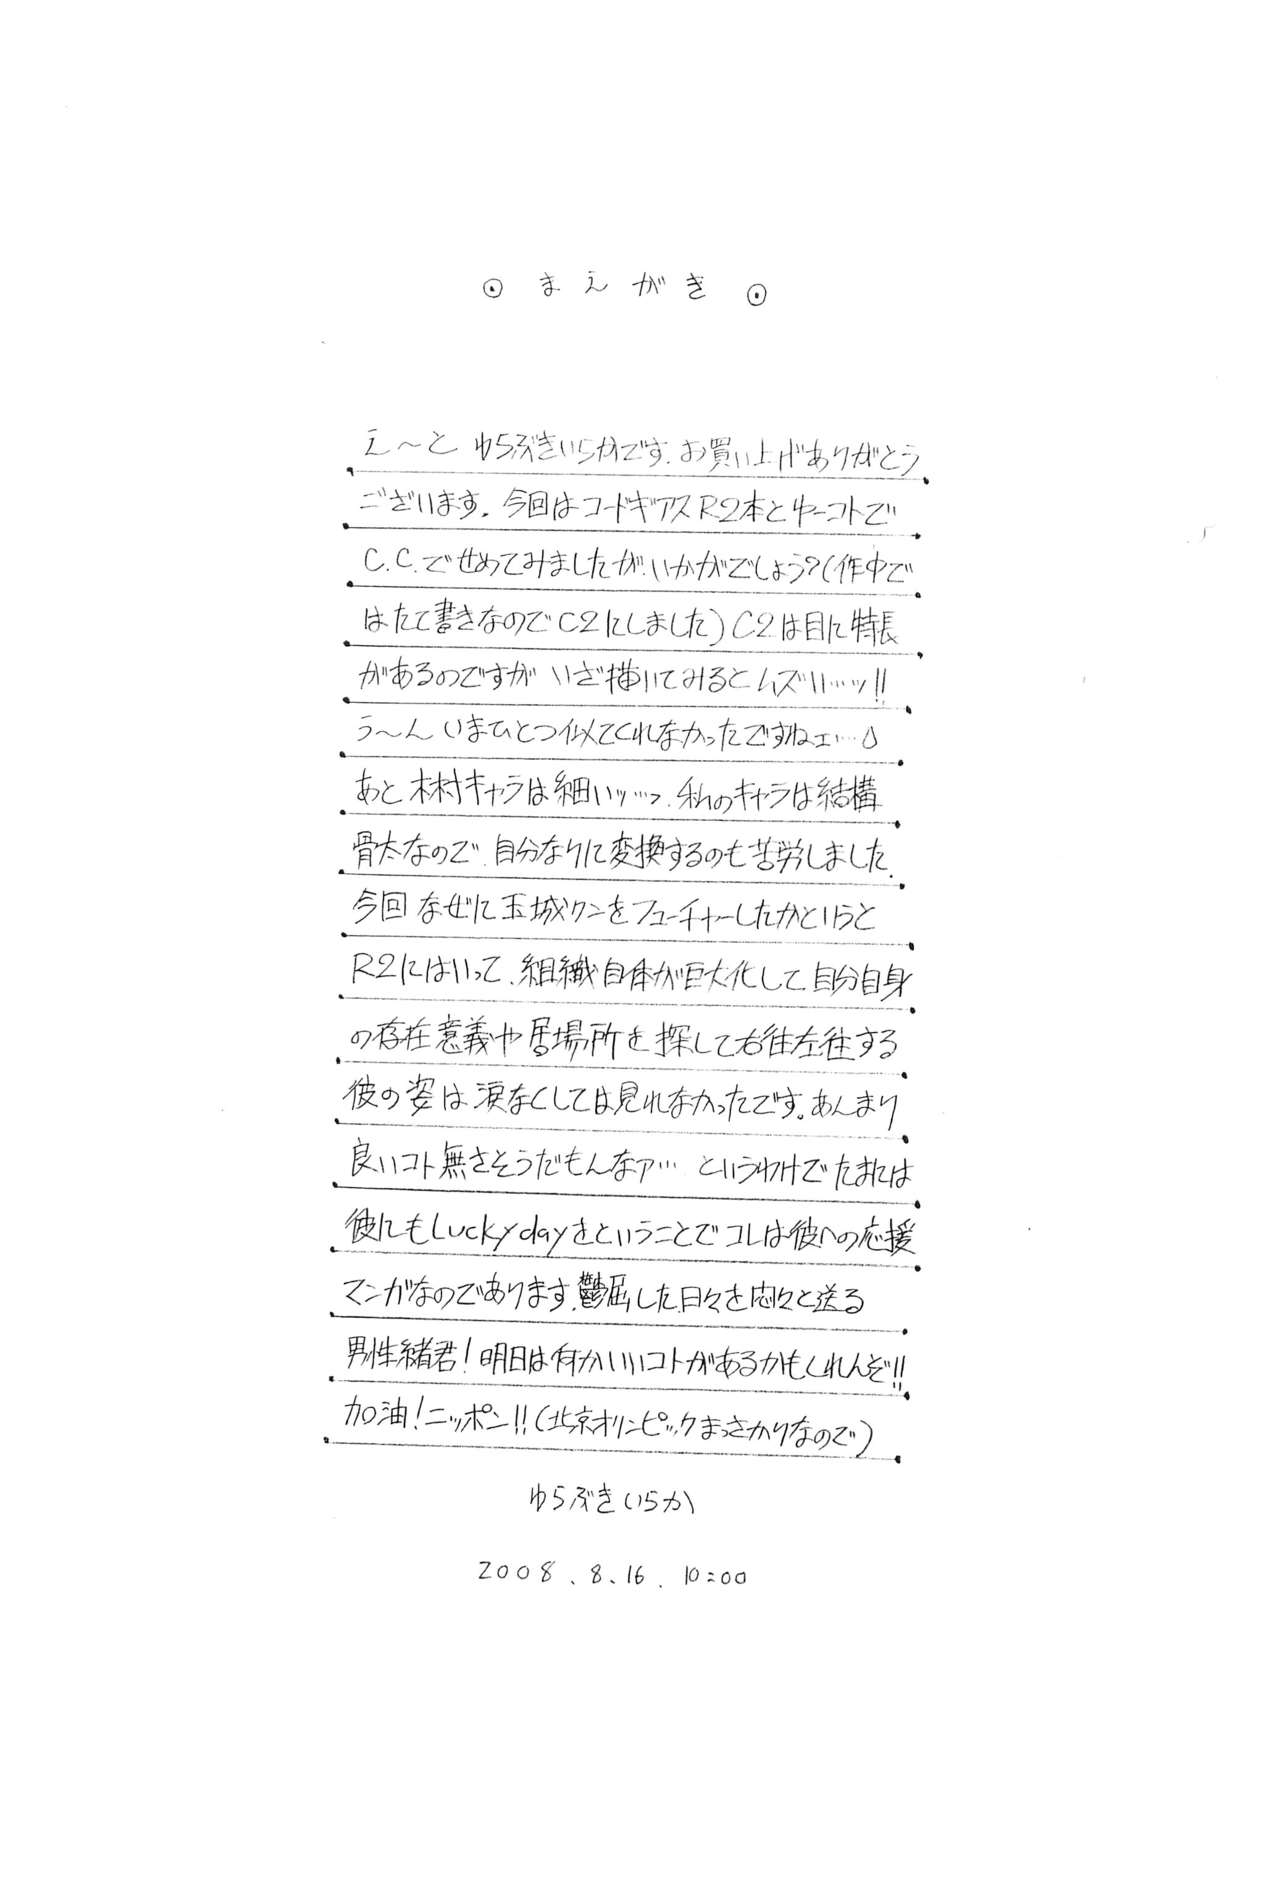 ⊙ まえがき ⊙
え〜と ゆらぶきいらかです、お買い上げありがとう
ございます。今回はコードギアスR2本とゆーコトで
C.C.でせめてみましたが、いかがでしょう?(作中で
はたて書きなのでC2にしました)C2は目に特長
があるのですが いざ描いてみるとムズい…ッ!!
う〜ん いまひとつ似てくれなかったですねェ…
あと木村キャラは細いッ…っ、私のキャラは結構
骨太なので、自分なりに変換するのも苦労しました。
今回なぜに玉城クンをフューチャーしたかというと
R2にはいって、組織自体が巨大化して自分自身
の存在意義や居場所を探して右往左往する
彼の姿は涙なくしては見れなかったです。あんまり
良いコト無さそうだもんなァ… というわけでたまには
彼にもLucky dayをということでコレは彼への応援
マンガなのであります。鬱屈した日々を悶々と送る
男性緒君!明日は何かいいコトがあるかもしれんぞ!!
加油!ニッポン!!(北京オリンピックまっさかりなので)
ゆらぶきいらか
2008.8.16. 10:00